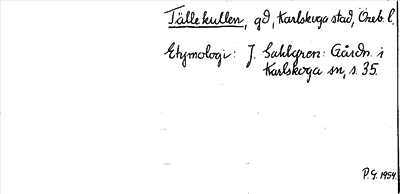 Tällekullen, gd, Karlskoga stad, Öreb. l.
Etymologi: J. Sahlgren: Gårdn. i
Karlskoga sn, s. 35.
P.G. 1954.